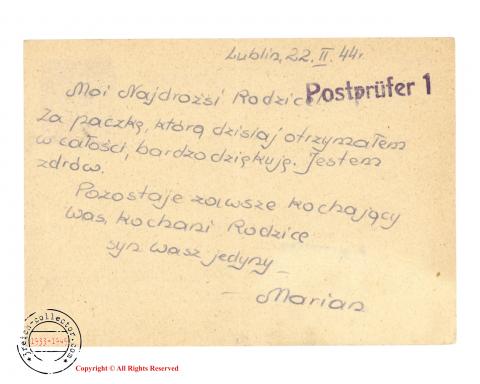 Lublin, 22. II. 44r.
Moi Najdrożsi Rodzice
Postprüfer 1
Za paczkę, którą dzisiaj otrzymałem
w całości, bardzo dziękuję. Jestem
zdrów.
Pozostaje zawsze kochający
was, kochani Rodzice
syn wasz jedyny –
– Marian
3reich-collector.com
1933-1945
Copyright © All Rights Reserved